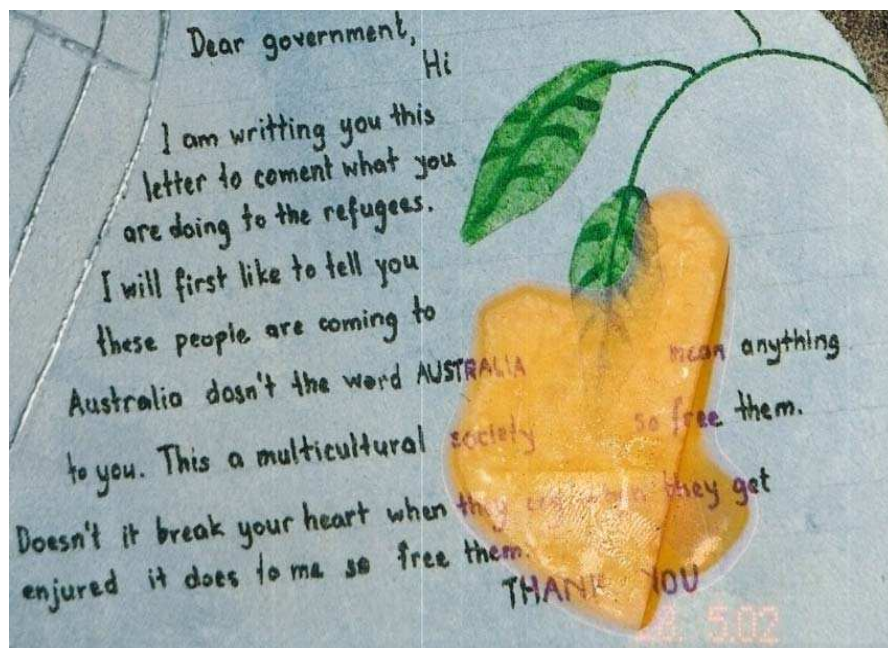 Dear government,
Hi
I am writting you this
letter to coment what you
are doing to the refugees.
I will first like to tell you
these people are coming to
Australia dosn't the word AUSTRALIA mean anything
to you. This a multicultural society so free them.
Doesn't it break your heart when they they get
enjured it does to me so free them.
THANK YOU
5.02